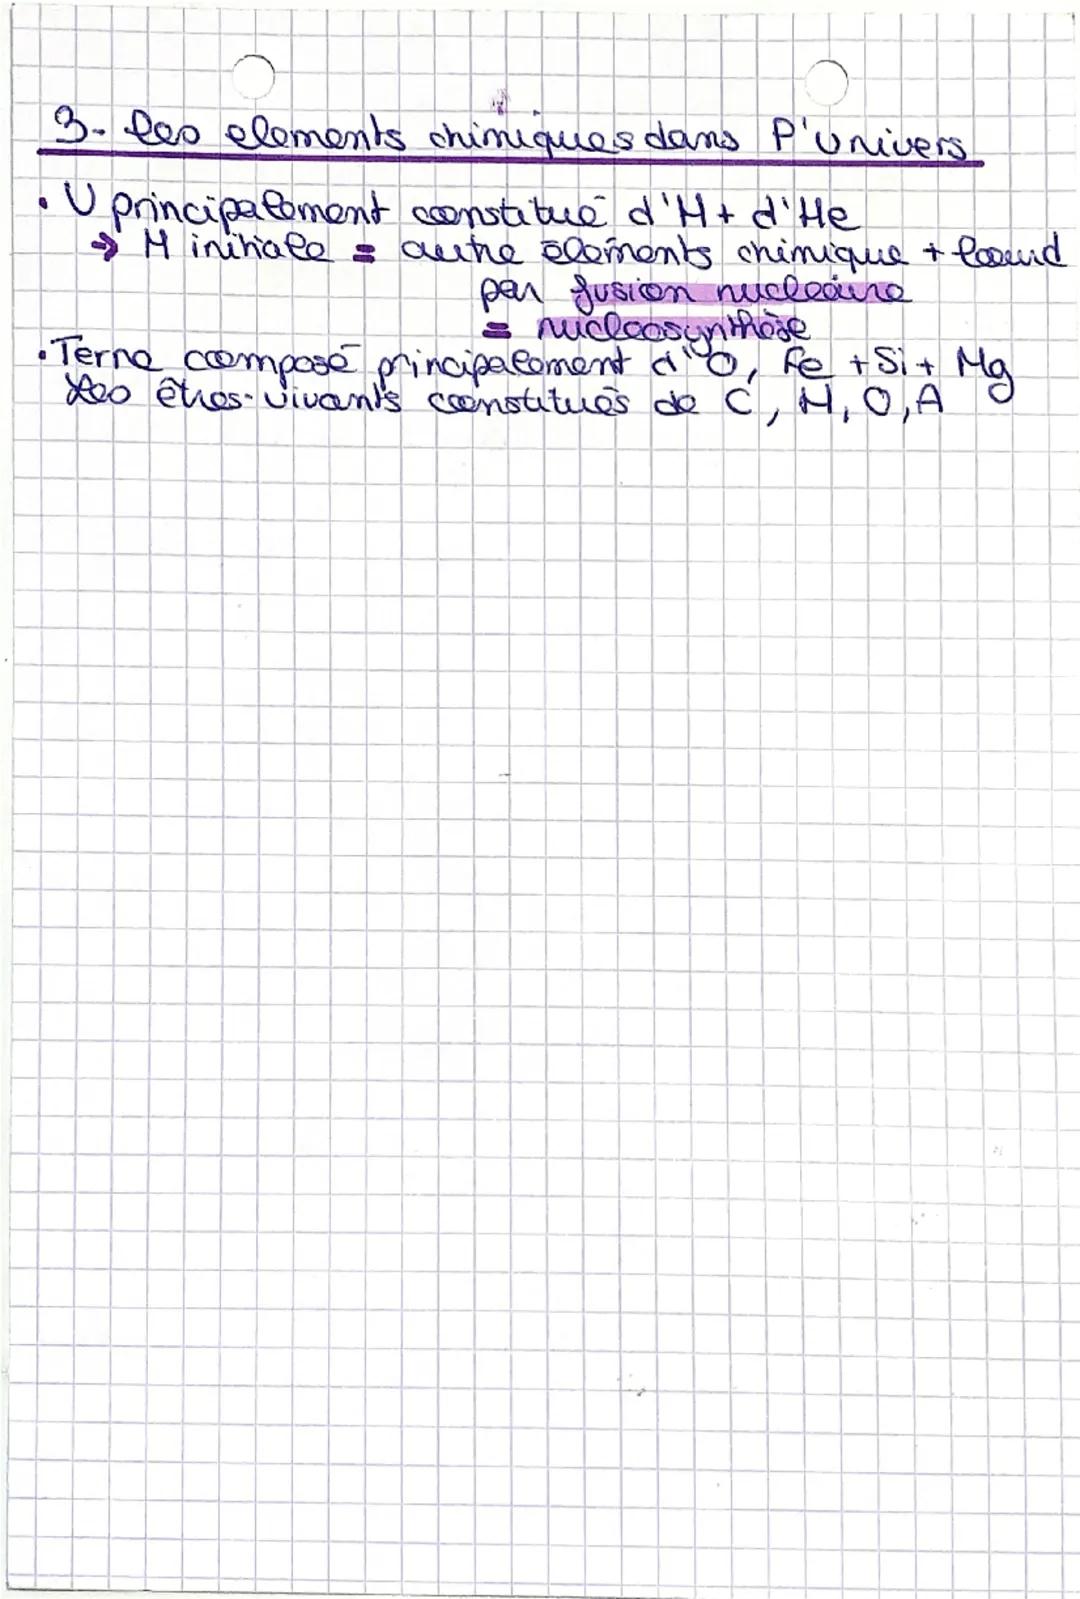 3- les elements chimiques dans l'univers
• U principalement constitué d'H + d'He
→ H initiale = autre éléments chimique + lourd
par fusion nucléaire
= nucléosynthèse
• Terre composé principalement d'O, Fe + Si + Mg
Les êtres-vivants constitués de C, H, O, A